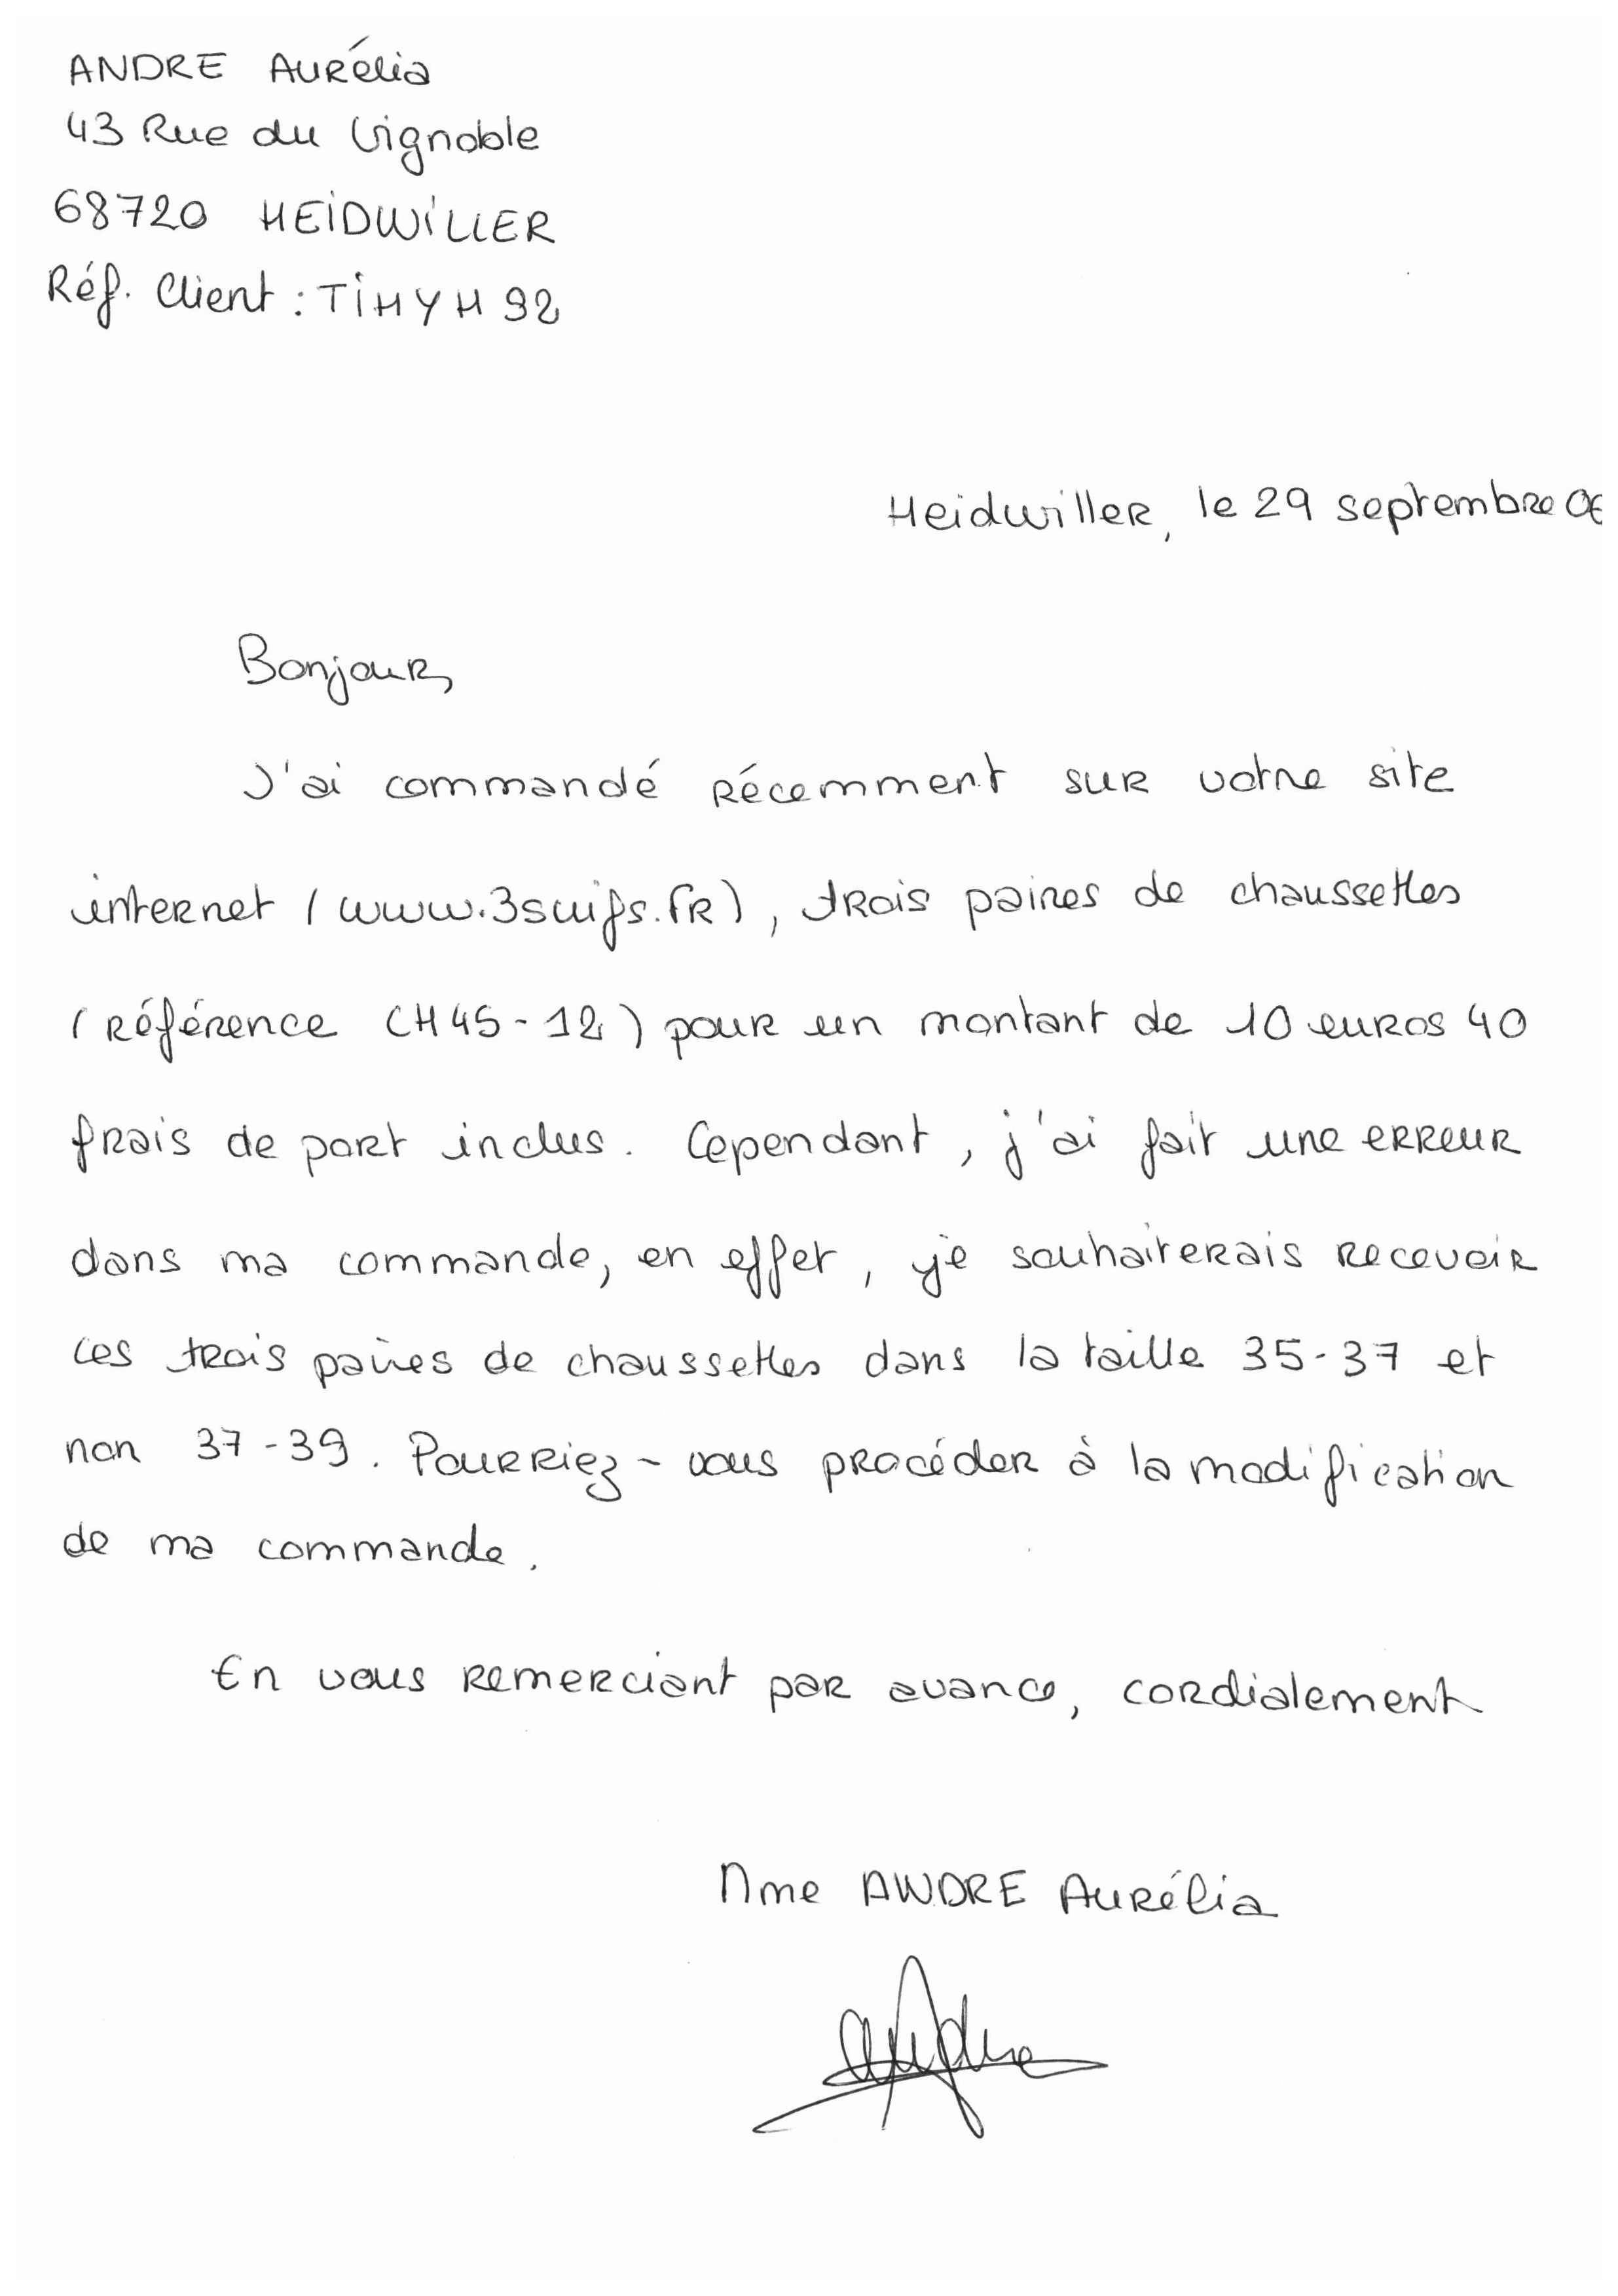 ANDRE Aurélia
43 Rue du Vignoble
68720 HEIDWILLER
Réf. Client : TIMYM 92
Heidwiller, le 29 septembre 06
Bonjour,
J'ai commandé récemment sur votre site
internet (www.3suifs.fr), trois paires de chaussettes
(référence CH45-12) pour un montant de 10 euros 40
frais de port inclus. Cependant, j'ai fait une erreur
dans ma commande, en effet, je souhaiterais recevoir
ces trois paires de chaussettes dans la taille 35-37 et
non 37-39. Pourriez-vous procéder à la modification
de ma commande.
En vous remerciant par avance, cordialement
Mme ANDRE Aurélia